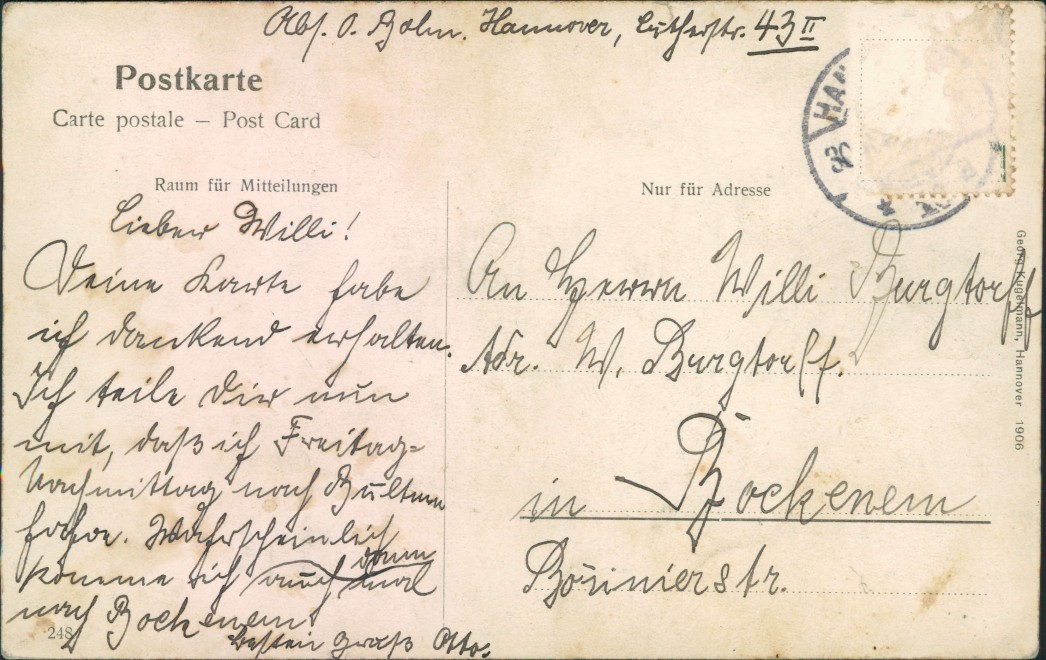 Abs. O. Bolm. Hannover, Lutherstr. 43 II
Postkarte
Carte postale – Post Card
HAN
Raum für Mitteilungen
Nur für Adresse
Lieber Willi!
Deine Karte habe
ich dankend erhalten.
Ich teile Dir nun
mit, daß ich Freitag-
Nachmittag nach Bülten
fahre. Wahrscheinlich
komme ich auch dann mal
nach Bockenem.
Besten Gruß Otto.
An Herrn Willi Burgtorff
Adr. W. Burgtorff.
in Bockenem
Bönnierstr.
Georg Kugelmann, Hannover 1906
248